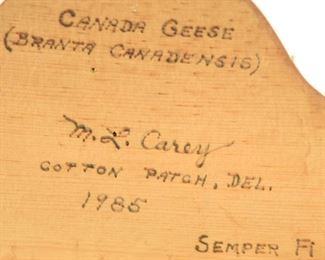 CANADA GEESE
(BRANTA CANADENSIS)
M. L. Carey
COTTON PATCH, DEL.
1985
SEMPER Fi